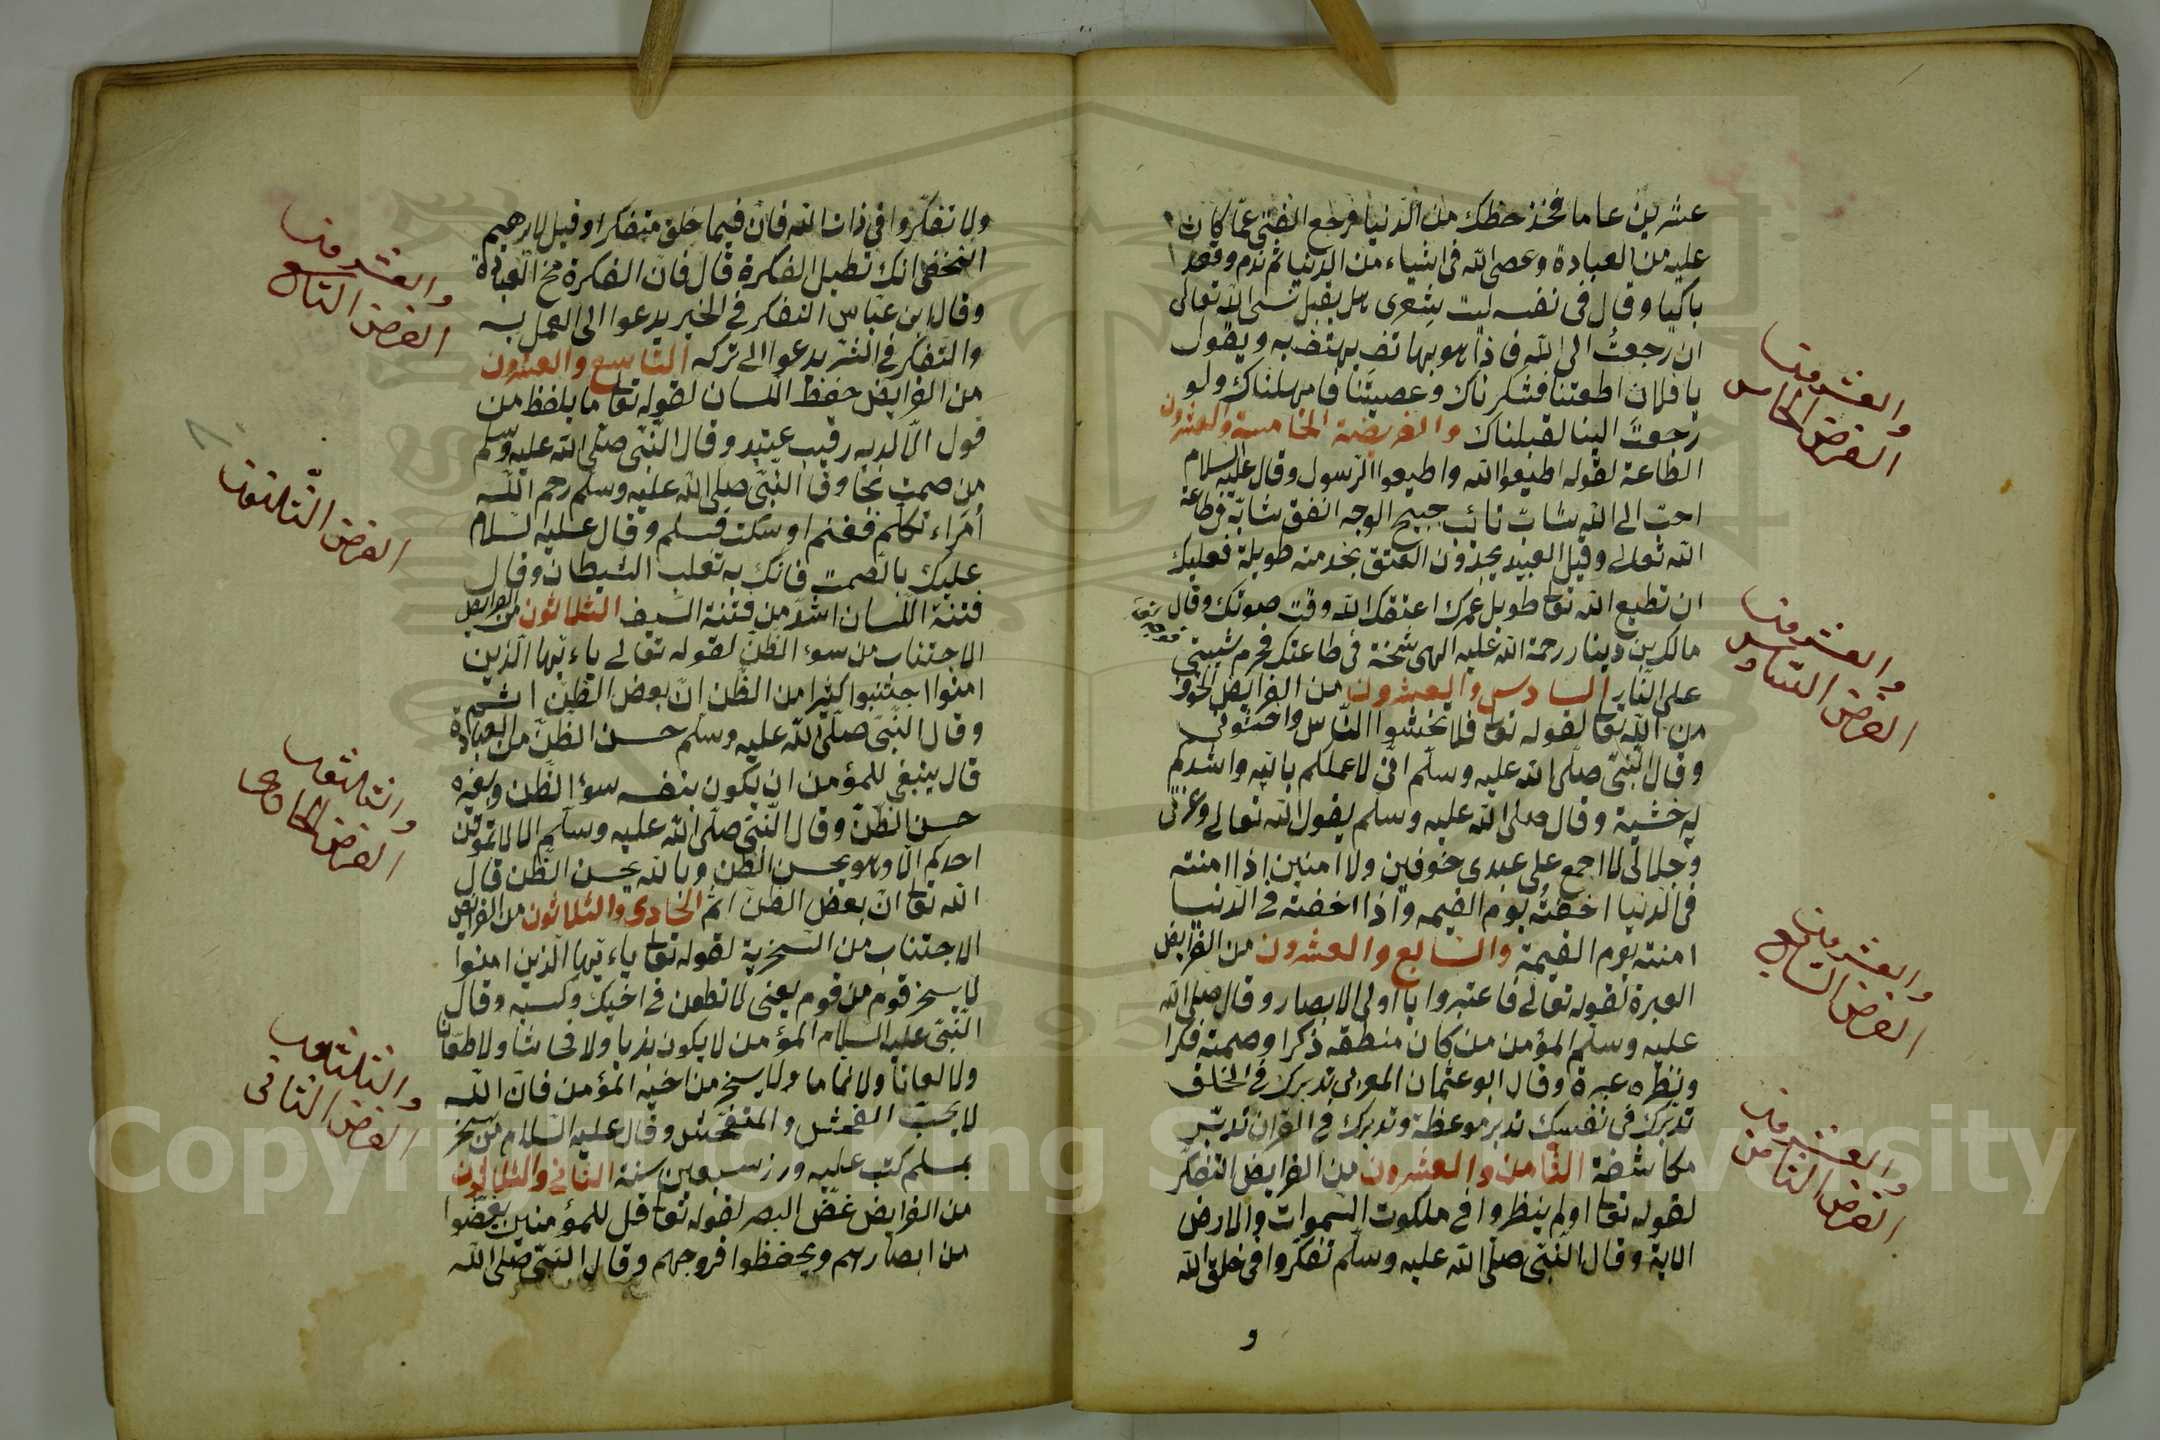 عشرين عاما فخذ حظك من الدنيا فرجع الفتى عما كان
عليه من العبادة وعصى الله في اشياء من الدنيا ثم ندم وقعد
باكيا وقال في نفسه ليت شعرى هل يقبلنى الله تعالى
ان رجعتُ الى الله فاذا هو بهاتف يهتف به ويقول
يا فلان اطعتنا فشكرناك وعصيتنا فامهلناك ولو
رجعتَ الينا لقبلناك والفريضة الخامسة والعشرون
الطاعة لقوله اطيعوا الله واطيعوا الرسول وقال عليه السلام
احب الى الله شاب تائب الوجه انفق شابّه في طاعة
الله تعالى وقيل العبيد يجدون العتق بخدمته طويلة فعليك
ان تطيع الله تعا طويل عمرك اعتقك الله وقت موتك وقال
مالك بن دينار رحمة الله عليه الهى في طاعتك فحرم شيبتى
على النار السادس والعشرون من الفرايض الخوف
من الله تعا لقوله تعا فلا تخشوا الناس واخشونى
وقال النبى صلى الله عليه وسلم انى لاعملكم بالله واشدكم
له خشية وقال صلى الله عليه وسلم يقول الله تعالى وعزتى
وجلالى لا اجمع على عبدى خوفين ولا امنين اذا امنته
فى الدنيا اخفتُه يوم القيمه واذا اخفته فى الدنيا
امنته يوم القيمة والسابع والعشرون من الفرايض
العبرة لقوله تعالى فاعتبروا يا اولى الابصار وقال صلى الله
عليه وسلم المؤمن من كان منطقه ذكرا وصمته فكرا
ونظره عبرة وقال ابو عثمان المغربى تدبرك فى الخلف
تدبرك فى نفسك تدبر موعظة وتدبرك فى القران تدبّر
مكاشفة الثامن والعشرون من الفرايض التفكر
لقوله تعا اولم ينظروا فى ملكوت السموات والارض
الاية وقال النبى صلى الله عليه وسلم تفكروا فى خلق الله
و
والعشرون
الفرض الخامس
والعشرون
الفرض السادس
والعشرون
الفرض السابع
والعشرون
الفرض الثامن
ولا تفكروا فى ذات الله فان فيما خلق متفكرا وقيل لابرهيم
النخعى انك تطيل الفكرة قال فان الفكرة مخ العبادة
وقال ابن عباس التفكر فى الخير يدعوا الى العمل به
والتفكر فى الشر يدعوا الى تركه التاسع والعشرون
من الفرايض حفظ اللسان لقوله تعا ما يلفظ من
قول الا لديه رقيب عتيد وقال النبى صلى الله عليه وسلم
من صمت نجا وقال النبى صلى الله عليه وسلم رحم الله
أمراء تكلم فغنم او سكت فسلم وقال عليه السلام
عليك بالصمت فانك به تغلب الشيطان وقال
فتنة اللسان اشد من فتنة السيف الثلاثون من الفرايض
الاجتناب من سوء الظن لقوله تعالى ياء يّها الذين
امنوا اجتنبوا كثيرا من الظن ان بعض الظن اثم
وقال النبى صلى الله عليه وسلم حسن الظن من العبادة
قال ينبغى للمؤمن ان يكون بنفسه سوء الظن وبغيره
حسن الظن وقال النبى صلى الله عليه وسلم الا لا تموتن
احدكم الا وهو يحسن الظن وبالله يحسن الظن قال
الله تعا ان بعض الظن اثم الحادى والثلاثون من الفرايض
الاجتناب من السخرية لقوله تعا ياء يّها الذين امنوا
لا يسخر قوم من قوم يعنى لا تطعن فى اخيك وكسبه وقال
النبى عليه السلام المؤمن لا يكون بذيا ولا فحاشا ولا طعّانا
ولا لعانا ولا نماما ولا يسخر من اخيه المؤمن فان الله
لا يحب الفحش والمتفحش وقال عليه السلام من سخر
بمسلم كتب عليه وزر سبعين سنة الثانى والثلاثون
من الفرايض غضّ البصر لقوله تعا قل للمؤمنين يغضّوا
من ابصارهم ويحفظوا فروجهم وقال النبى صلى الله
والعشرون
الفرض التاسع
الفرض الثلثون
والثلثون
الفرض الحادى
والثلثون
الفرض الثانى
Copyright © King Saud University